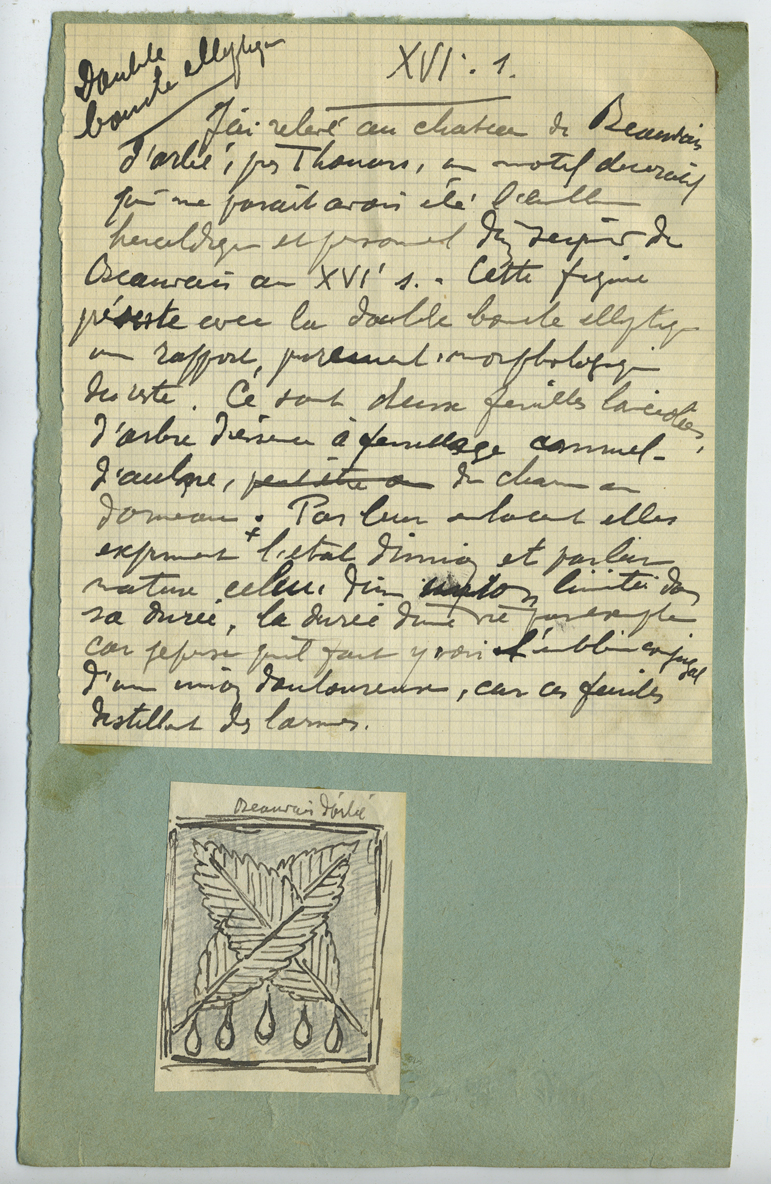 Double
boucle elliptique
XVIe. 1.
J'ai relevé au chateau de Beauvais
d'orbé, près Thouars, un motif décoratif
qui me parait avoir été l'emblème
heraldique et personnel du seigneur de
Beauvais au XVIe s. - Cette figure
présente avec la double boucle elliptique
un rapport, purement morphologique
du reste. Ce sont deux feuilles lancéolées,
d'arbre à feuillage annuel -
d'aulne, peut être ou du charme ou
d'ormeau. Par leur enlacement elles
expriment l'état d'union et par leur
nature celui d'un union limitée dans
sa durée, la durée d'une vie par exemple
car je pense qu'il faut y voir l'emblème conjugal
d'un union douloureuse, car ces feuilles
distillent des larmes.
Beauvais d'orbé